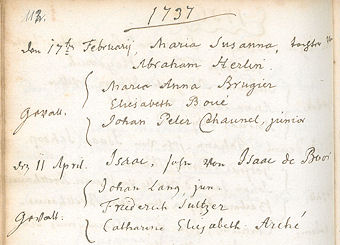 112.
1737
den 17ten Februarij, Maria Susanna, tochter von
Abraham Herlin.
Maria Anna Brugier
Elisabeth Boué
Gevatt. Johan Peter Chaunel, junior
den 11 April. Isaac, sohn von Isaac de Booi
Johan Lang, jun.
Gevatt. Friderich Sultzer
Catharine Elisabeth Arché